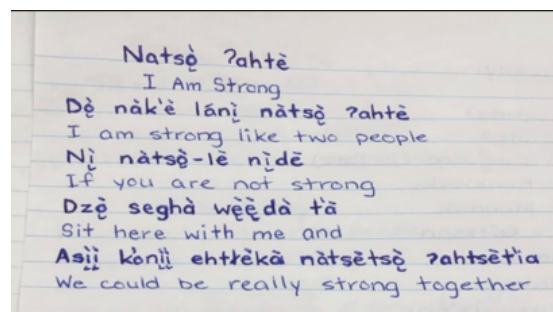 Natsò̱ ʔahtè
I Am Strong
Dè̱ nàk'è lánì̱ nàtsò̱ ʔahtè
I am strong like two people
Nì̱ nàtsò̱-lē nì̱dē
If you are not strong
Dzè̱ seghà wè̱è̱dà t'à
Sit here with me and
Asì̱ì̱ kònì̱ì̱ ehtłèkà nàtsētsò̱ ʔahtsēt'ìa
We could be really strong together